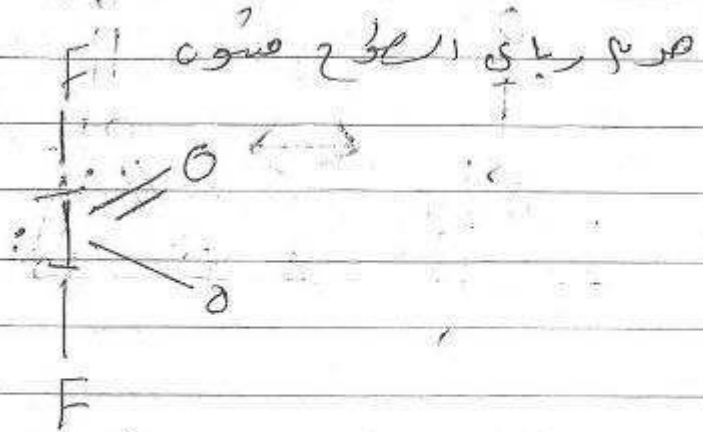 هرم رباعي السطوح مشوه
F
O
I
O
F